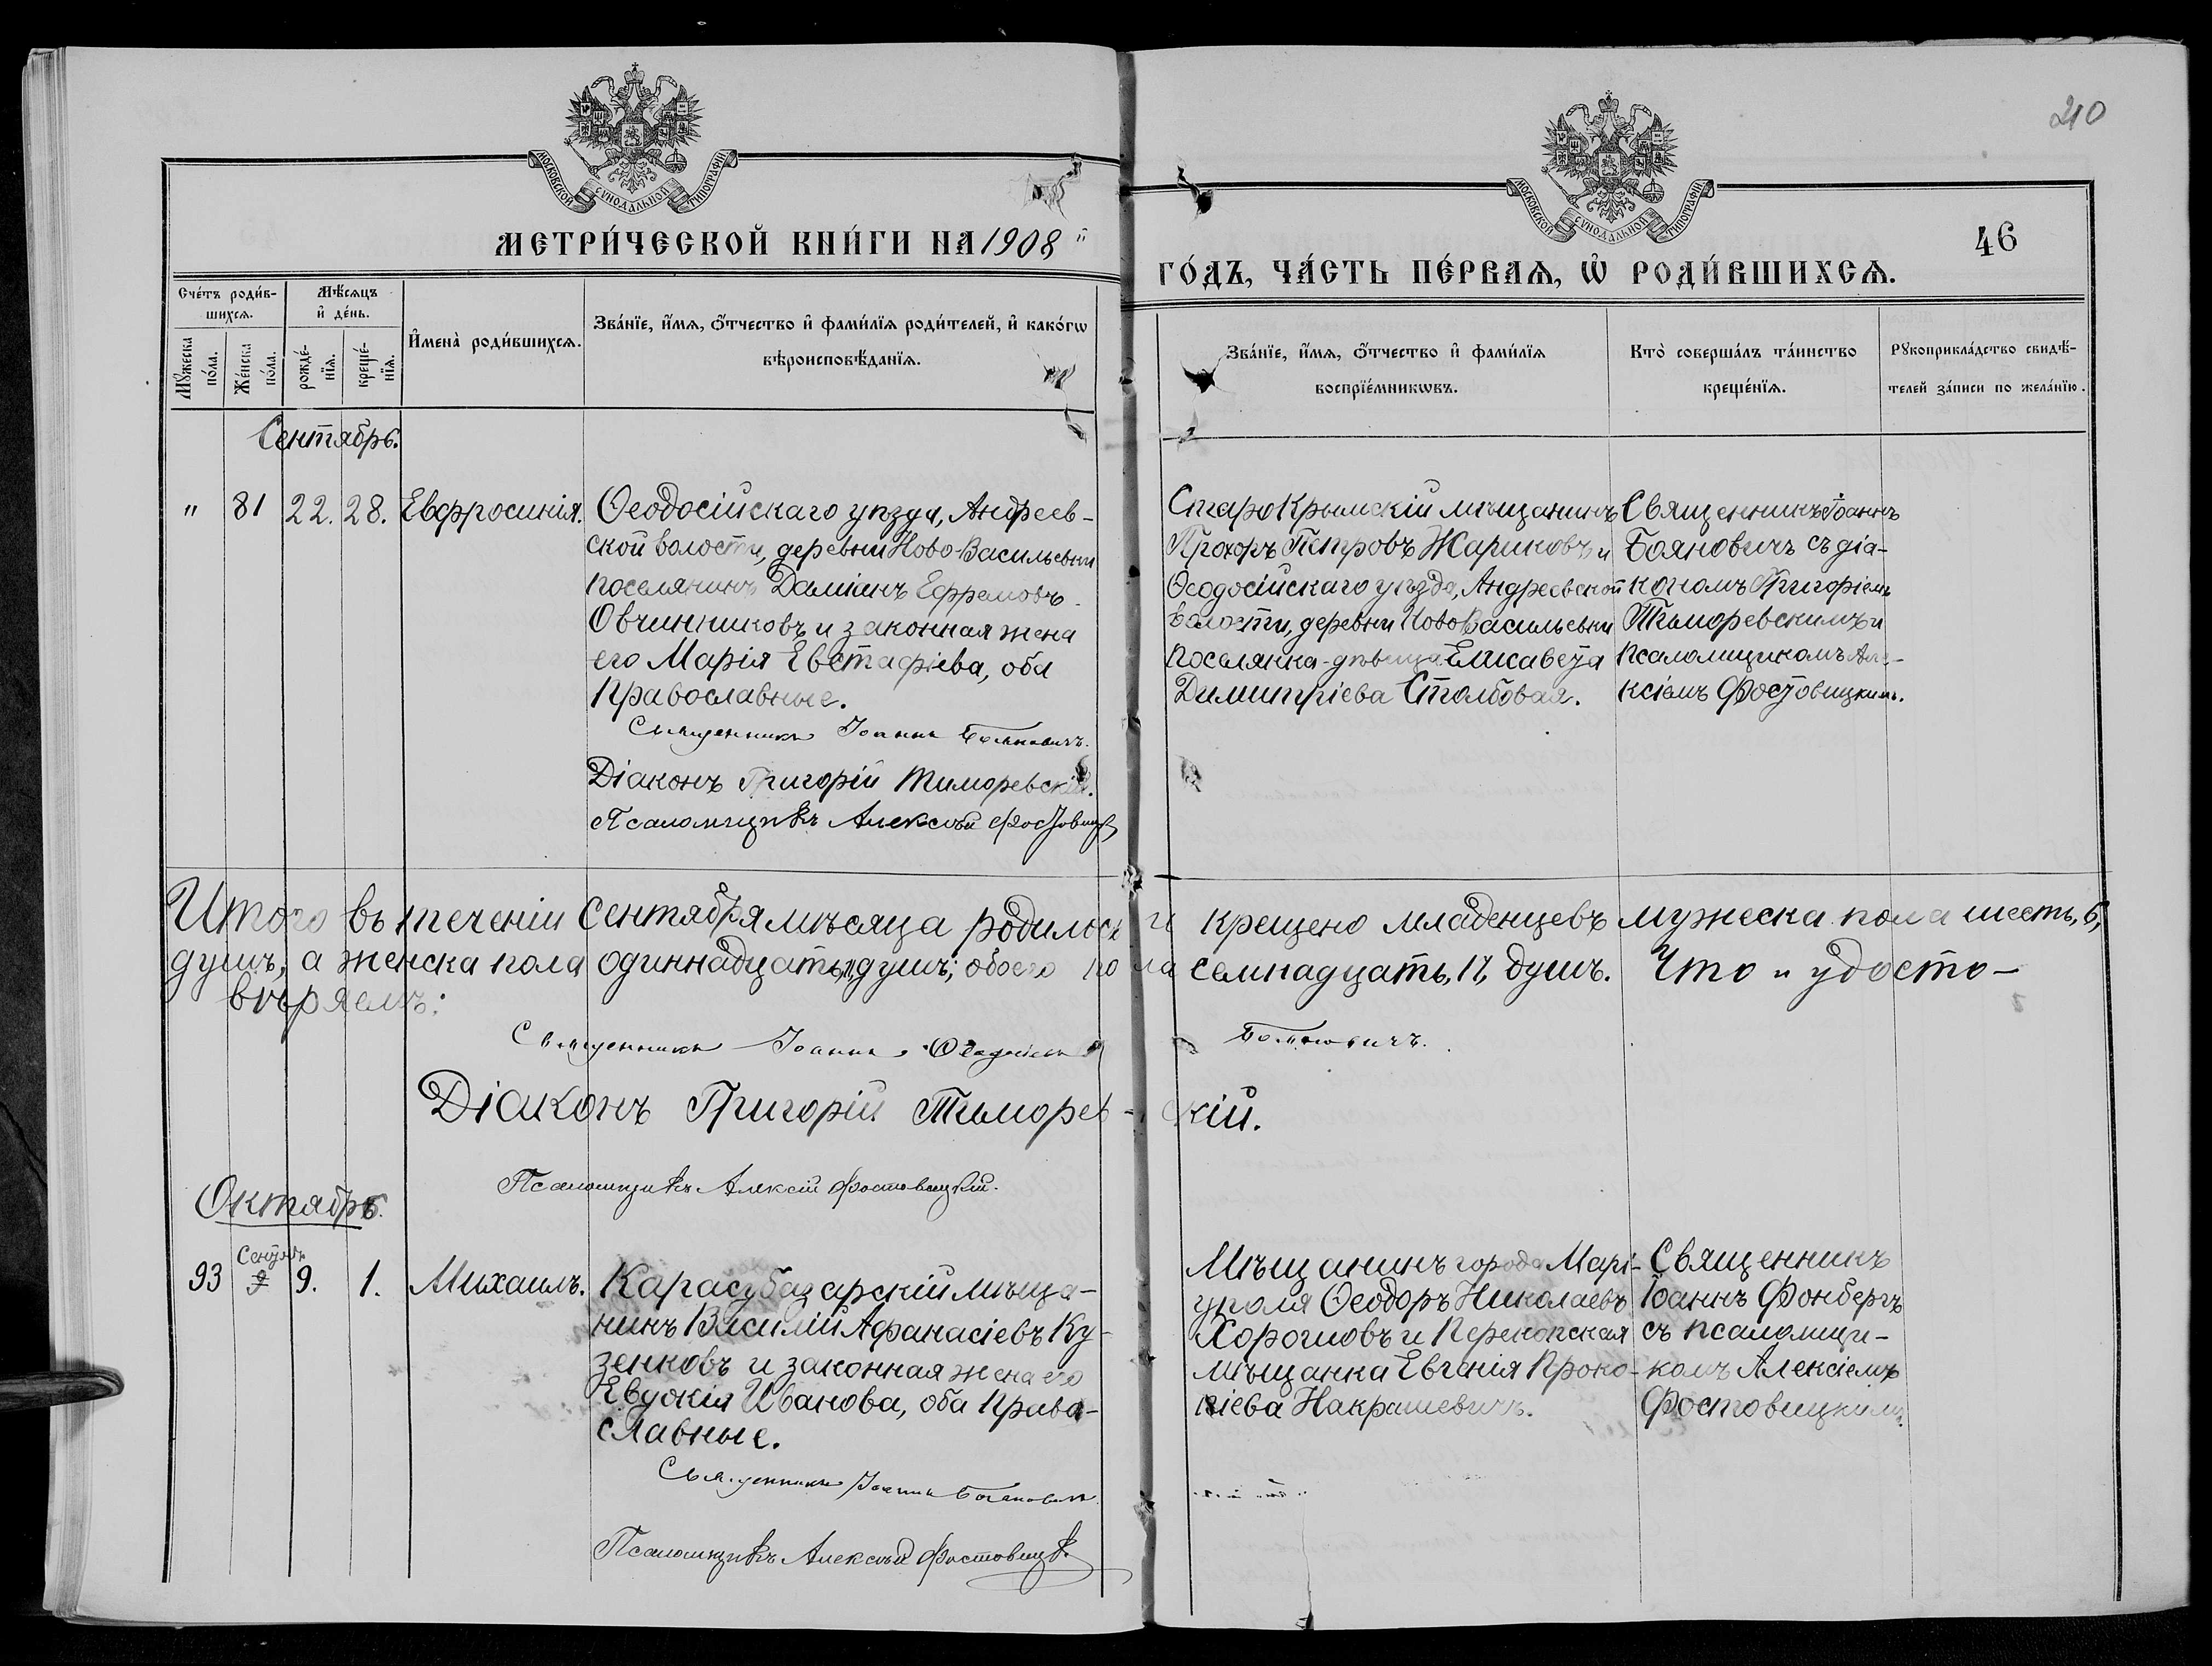 210
МОСКОВСКОЙ СѴНОДАЛЬНОЙ ТИПОГРАФІИ
МОСКОВСКОЙ СѴНОДАЛЬНОЙ ТИПОГРАФІИ
МЕТРИ́ЧЕСКОЙ КНИ́ГИ НА 1908 й
46
ГО́ДЪ, ЧА́СТЬ ПЕ́РВАѦ, Ѡ҆ РОДИ́ВШИХСѦ.
Сче́тъ роди́в-
шихсѧ.
Мѣ́сѧцъ
и҆ де́нь.
Мꙋ́жеска по́ла.
Же́нска по́ла.
рожде́-
нїѧ.
креще́-
нїѧ.
И҆мена̀ роди́вшихсѧ.
Зва́нїе, и҆́мѧ, ѻ҆́тчество и҆ фами́лїѧ роди́телей, и҆ како́гѡ
вѣроисповѣ́данїѧ.
Зва́нїе, и҆́мѧ, ѻ҆́тчество и҆ фами́лїѧ
воспрїе́мникѡвъ.
Кто̀ соверша́лъ та́инство
креще́нїѧ.
Рꙋкоприкла́дство свидѣ́-
телей за́писи по жела́нїю.
Сентябрь.
" 81 22. 28. Евфросинія.
Ѳеодосійскаго уѣзда, Андреев-
ской волости, деревни Ново-Васильевки
поселянинъ Даміанъ Ефремовъ
Овчинниковъ и законная жена
его Марія Евстафіева, оба
православные.
Священникъ Іоаннъ Бояновичъ.
Діаконъ Григорій Тиморевскій.
Псаломщикъ Алексѣй Фостовицк
СтароКрымскій мѣщанинъ
Прохоръ Петровъ Жариковъ и
Ѳеодосійскаго уѣзда, Андреевской
волости, деревни НовоВасильевки
поселянка-дѣвица Елисавета
Димитріева Столбовая.
Священникъ Іоаннъ
Бояновичъ съ діа-
кономъ Григоріемъ
Тиморевскимъ и
псаломщикомъ Але-
ксіемъ Фостовицкимъ.
Итого въ теченіи Сентября мѣсяца родилось и крещено младенцевъ мужеска пола шесть, 6,
душъ, а женска пола одиннадцать, 11, душъ; обоего пола семнадцать, 17, душъ. Что и удосто-
вѣряемъ:
Священникъ Іоаннъ Бояновичъ.
Діаконъ Григорій Тиморев-скій.
Псаломщикъ Алексій Фостовицкій.
Октябрь.
Сентяб.
93 9. 1. Михаилъ.
Карасубазарскій мѣща-
нинъ Василій Афанасіевъ Ку-
зенковъ и законная жена его
Евдокія Иванова, оба право-
славные.
Священникъ Іоаннъ Бояновичъ
Псаломщикъ Алексѣй Фостовицк.
Мѣщанинъ города Марі-
уполя Ѳеодоръ Николаевъ
Хорошовъ и Перекопская
мѣщанка Евгенія Проко-
піева Накрашевичъ.
Священникъ
Іоаннъ Фонбергъ
съ псаломщи-
комъ Алексіемъ
Фостовицкимъ.